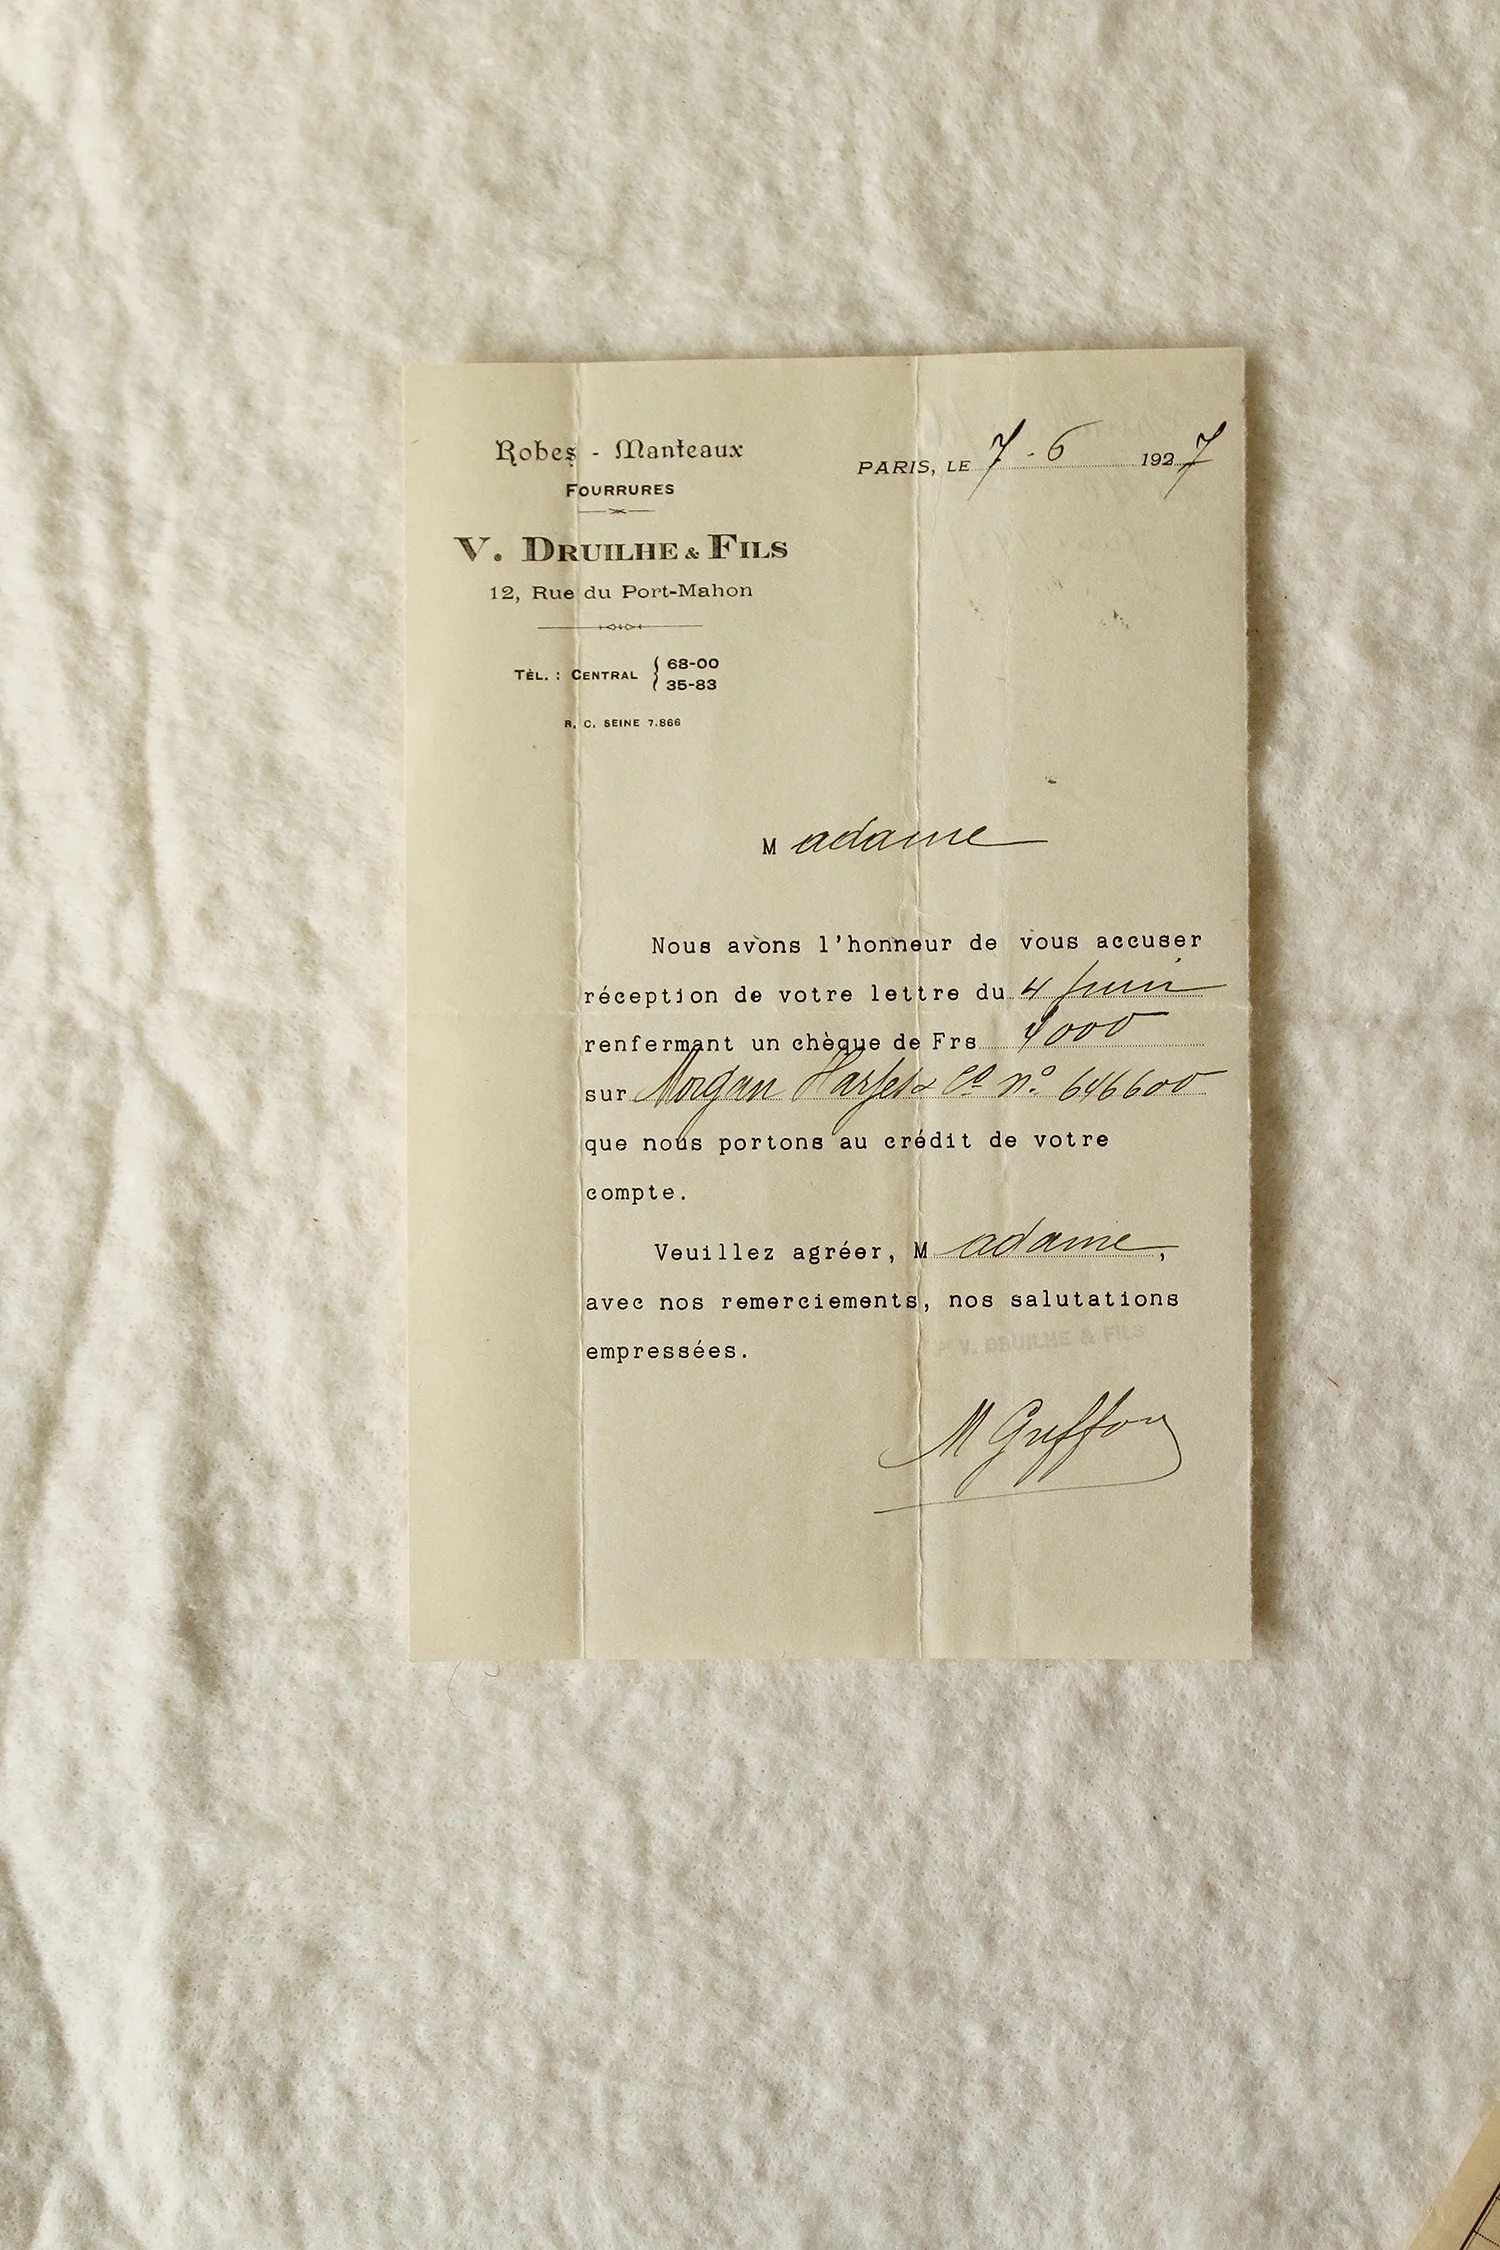 Robes - Manteaux
FOURRURES
V. DRUILHE & FILS
12, Rue du Port-Mahon
TÈL. : CENTRAL { 68-00
35-83
R. C. SEINE 7.866
PARIS, LE 7 - 6 1927
Madame
Nous avons l'honneur de vous accuser
réception de votre lettre du 4 Juin
renfermant un chèque de Frs 4000
sur Morgan Harjes & Co no. 646600
que nous portons au crédit de votre
compte.
Veuillez agréer, Madame,
avec nos remerciements, nos salutations
empressées.
P V. DRUILHE & FILS
M Griffon